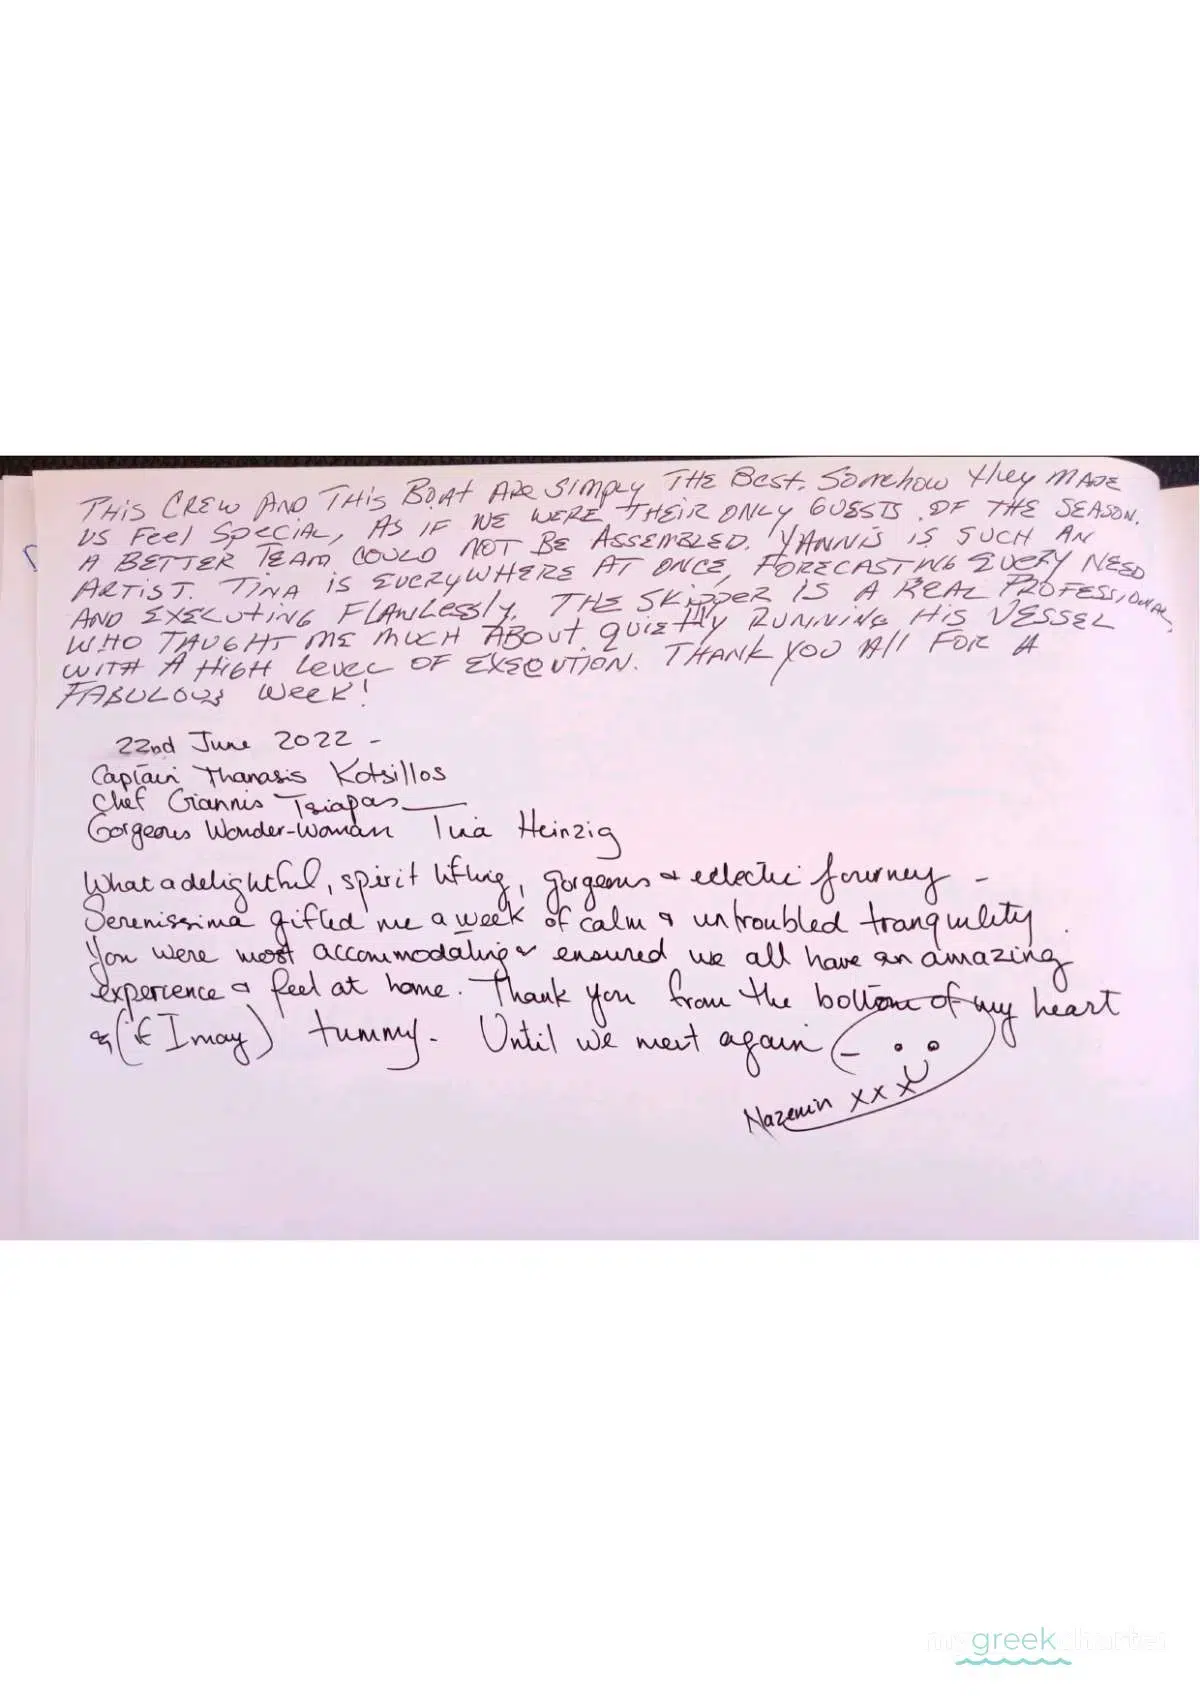 THIS CREW AND THIS BOAT ARE SIMPLY THE BEST. SOMEHOW they MADE
US FEEL SPECIAL, AS IF WE WERE THEIR ONLY GUESTS OF THE SEASON.
A BETTER TEAM COULD NOT BE ASSEMBLED. YANNIS IS SUCH AN
ARTIST. TINA IS EVERYWHERE AT ONCE, FORECASTING EVERY NEED
AND EXECUTING FLAWLESSLY. THE SKIPPER IS A REAL PROFESSIONAL,
WHO TAUGHT ME MUCH ABOUT QUIETLY RUNNING HIS VESSEL
WITH A HIGH LEVEL OF EXECUTION. THANK YOU ALL FOR A
FABULOUS WEEK!
22nd June 2022 -
Captain Thanasis Kotsillos
Chef Giannis Tsiapas
Gorgeous Wonder-Woman Tina Heinzig
What a delightful, spirit lifting, gorgeous & eclectic journey -
Serenissima gifted me a week of calm & untroubled tranquility.
You were most accommodating & ensured we all have an amazing
experience & feel at home. Thank you from the bottom of my heart
& (if I may) tummy. Until we meet again -
Nazenin xxx
my greek charter